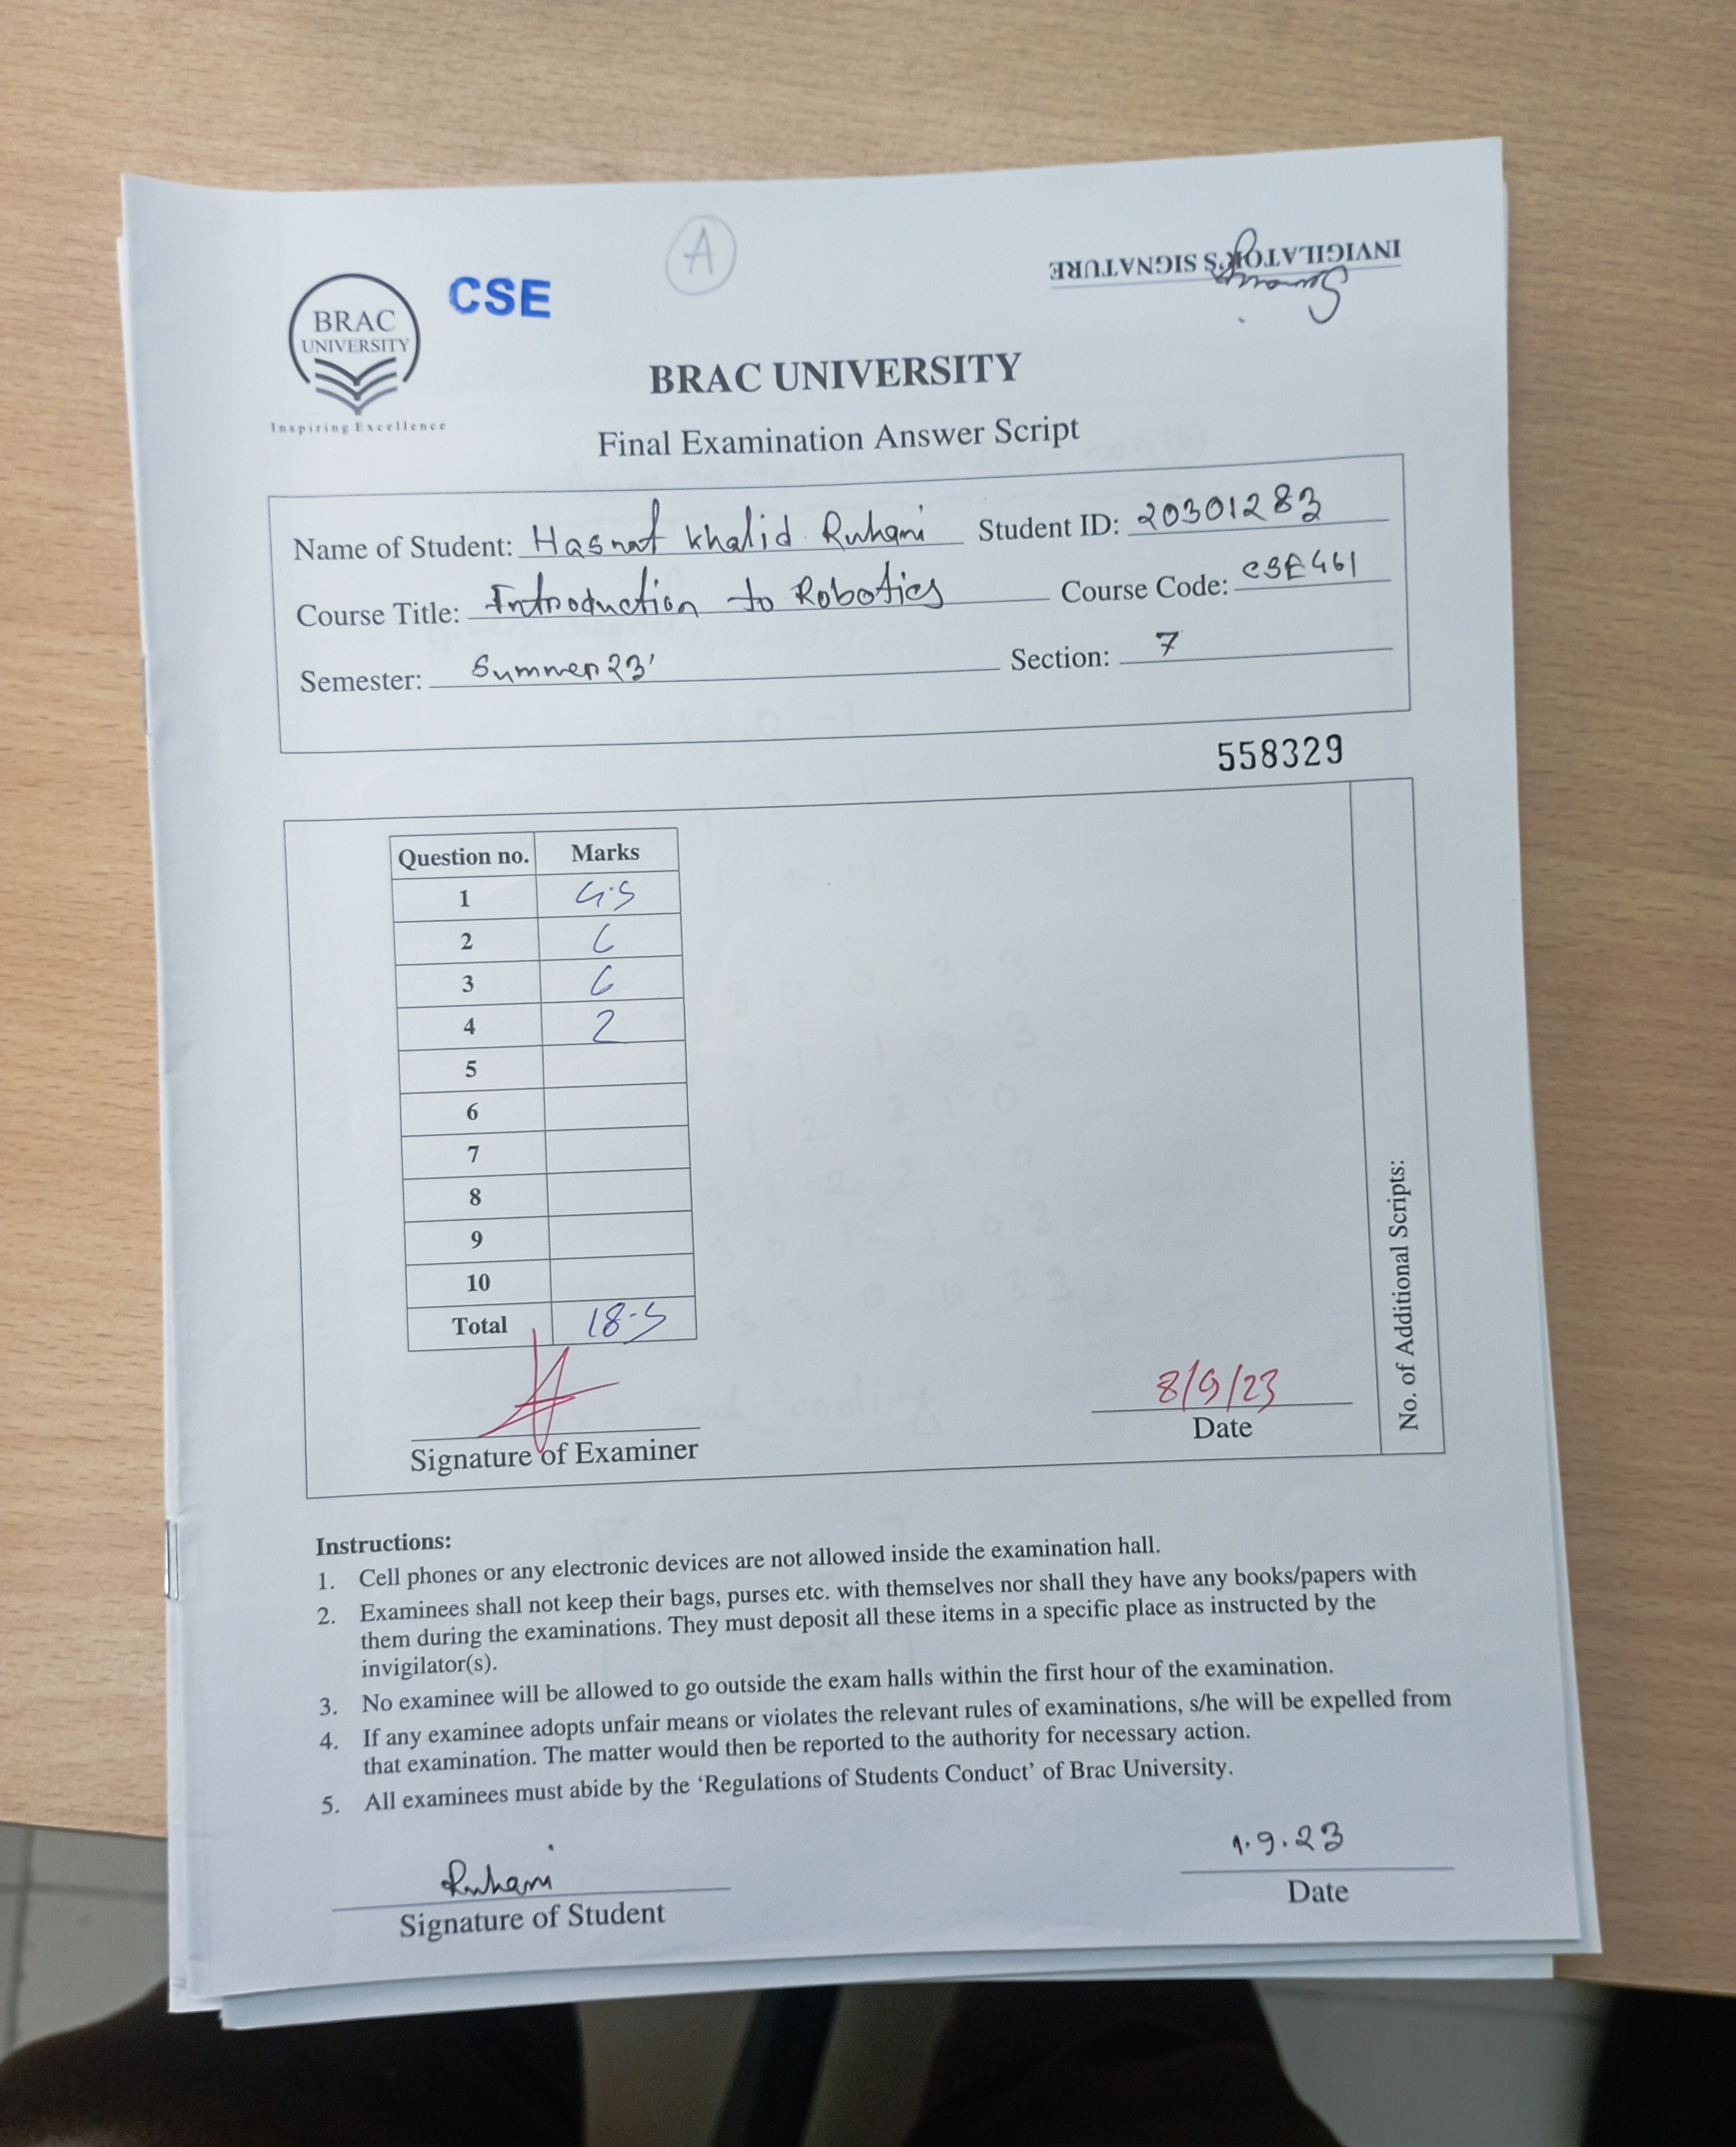 A
CSE
INVIGILATOR'S SIGNATURE
BRAC
UNIVERSITY
Inspiring Excellence
BRAC UNIVERSITY
Final Examination Answer Script
Name of Student: Hasnat Khalid Ruhani Student ID: 20301283
Course Title: Introduction to Robotics Course Code: CSE461
Semester: Summer 23' Section: 7
558329
Question no. Marks
1 4.5
2 6
3 6
4 2
5
6
7
8
9
10
Total 18.5
Signature of Examiner
8/9/23
Date
No. of Additional Scripts:
Instructions:
1. Cell phones or any electronic devices are not allowed inside the examination hall.
2. Examinees shall not keep their bags, purses etc. with themselves nor shall they have any books/papers with
them during the examinations. They must deposit all these items in a specific place as instructed by the
invigilator(s).
3. No examinee will be allowed to go outside the exam halls within the first hour of the examination.
4. If any examinee adopts unfair means or violates the relevant rules of examinations, s/he will be expelled from
that examination. The matter would then be reported to the authority for necessary action.
5. All examinees must abide by the ‘Regulations of Students Conduct’ of Brac University.
Ruhani
Signature of Student
1.9.23
Date